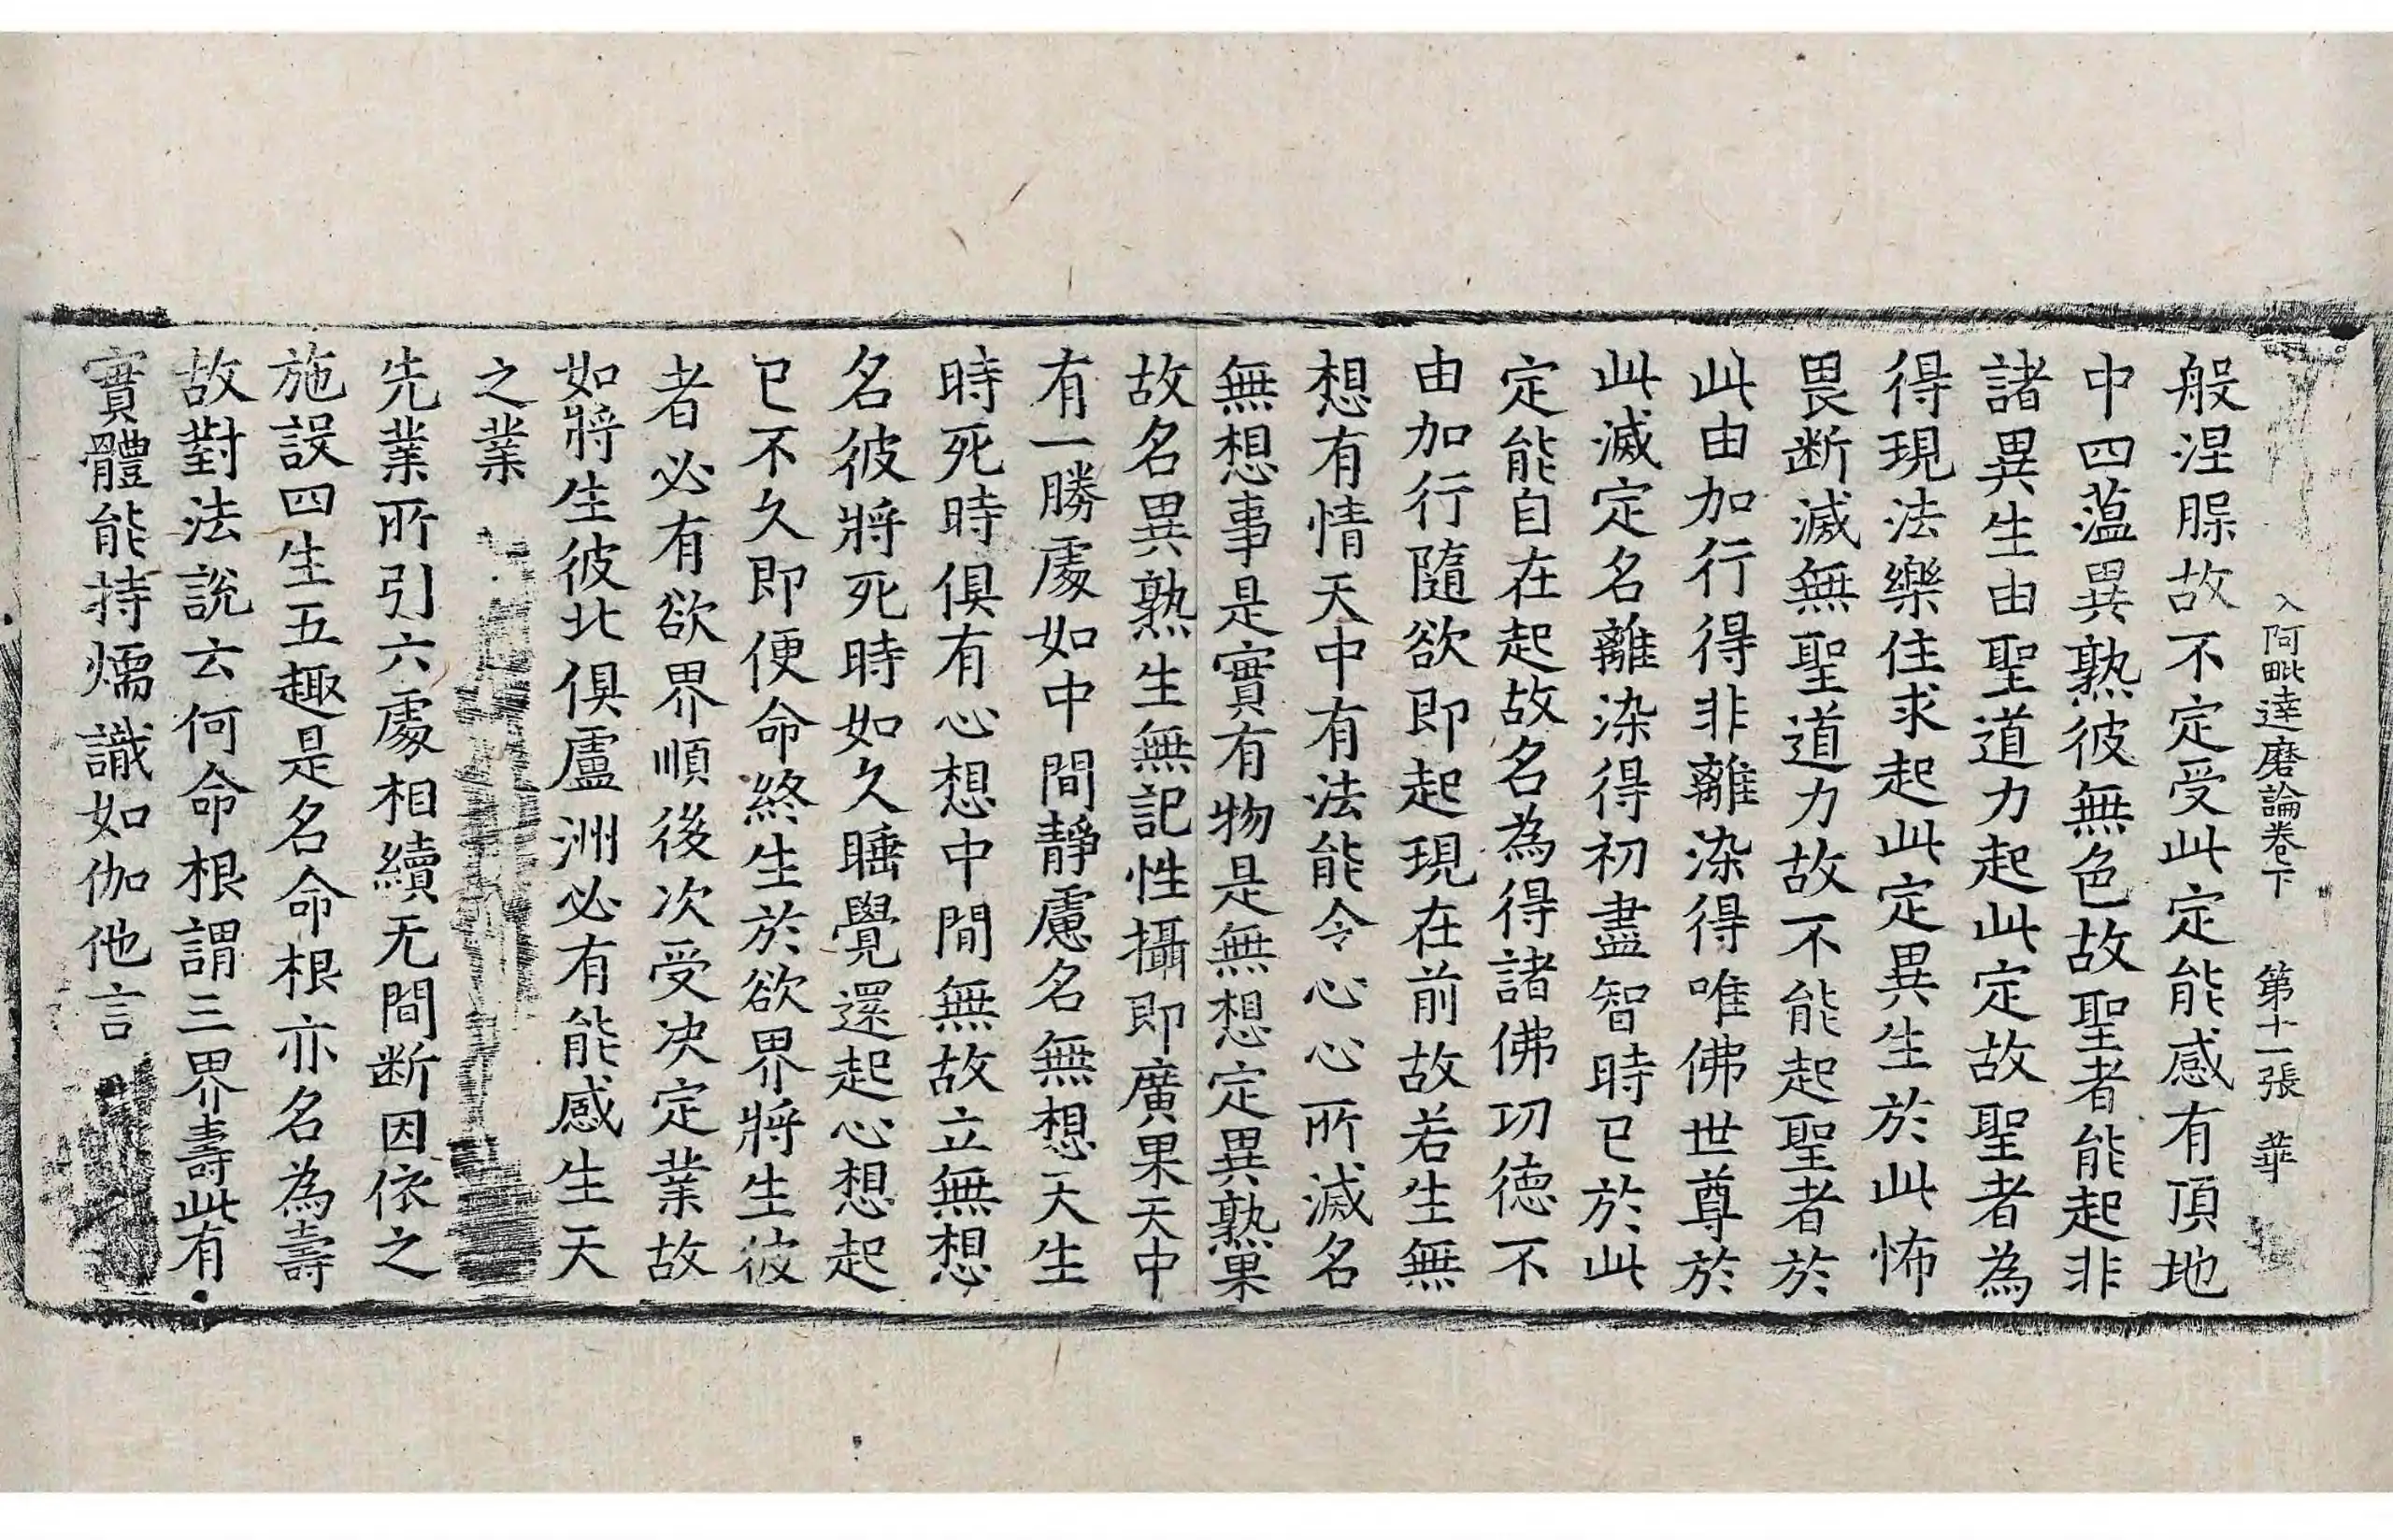 入阿毗達磨論卷下　第十一張　華
般涅腂故不定受此定能感有頂地
中四薀異熟彼無色故聖者能起非
諸異生由聖道力起此定故聖者為
得現法樂住求起此定異生於此怖
畏断滅無聖道力故不能起聖者於
此由加行得非離染得唯佛世尊於
此滅定名離染得初盡智時已於此
定能自在起故名為得諸佛功德不
由加行隨欲即起現在前故若生無
想有情天中有法能令心心所滅名
無想事是實有物是無想定異熟果
故名異熟生無記性攝即廣果天中
有一勝處如中間靜慮名無想天生
時死時俱有心想中間無故立無想
名彼將死時如久睡覺還起心想起
已不久即便命終生於欲界將生彼
者必有欲界順後次受决定業故
如將生彼北俱盧洲必有能感生天
之業
先業所引六處相續无間断因依之
施設四生五趣是名命根亦名為壽
故對法說云何命根謂三界壽此有
實體能持煗識如伽他言